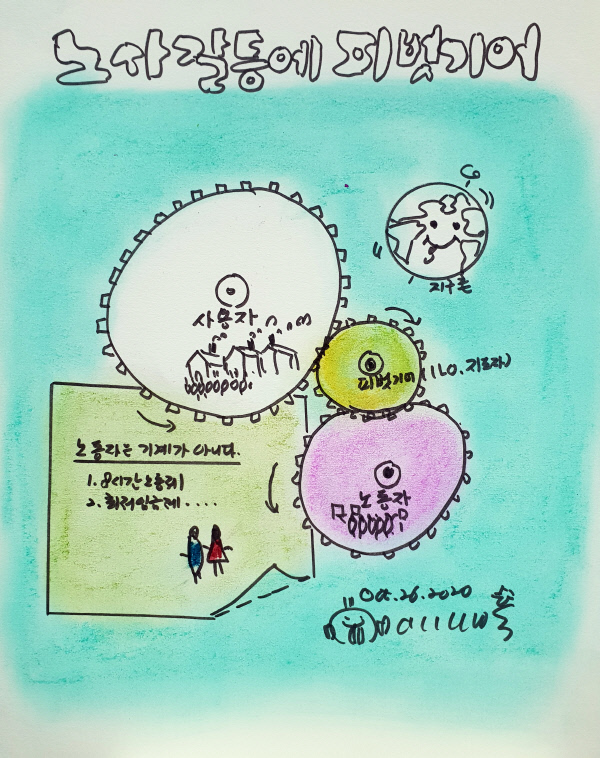 노사갈등에 피벗기어
지구촌
사용자
피벗기어 (ILO. 지도자)
노동자는 기계가 아니다.
1. 8시간 노동제
2. 최저임금제 ....
노동자
Oct. 26. 2020